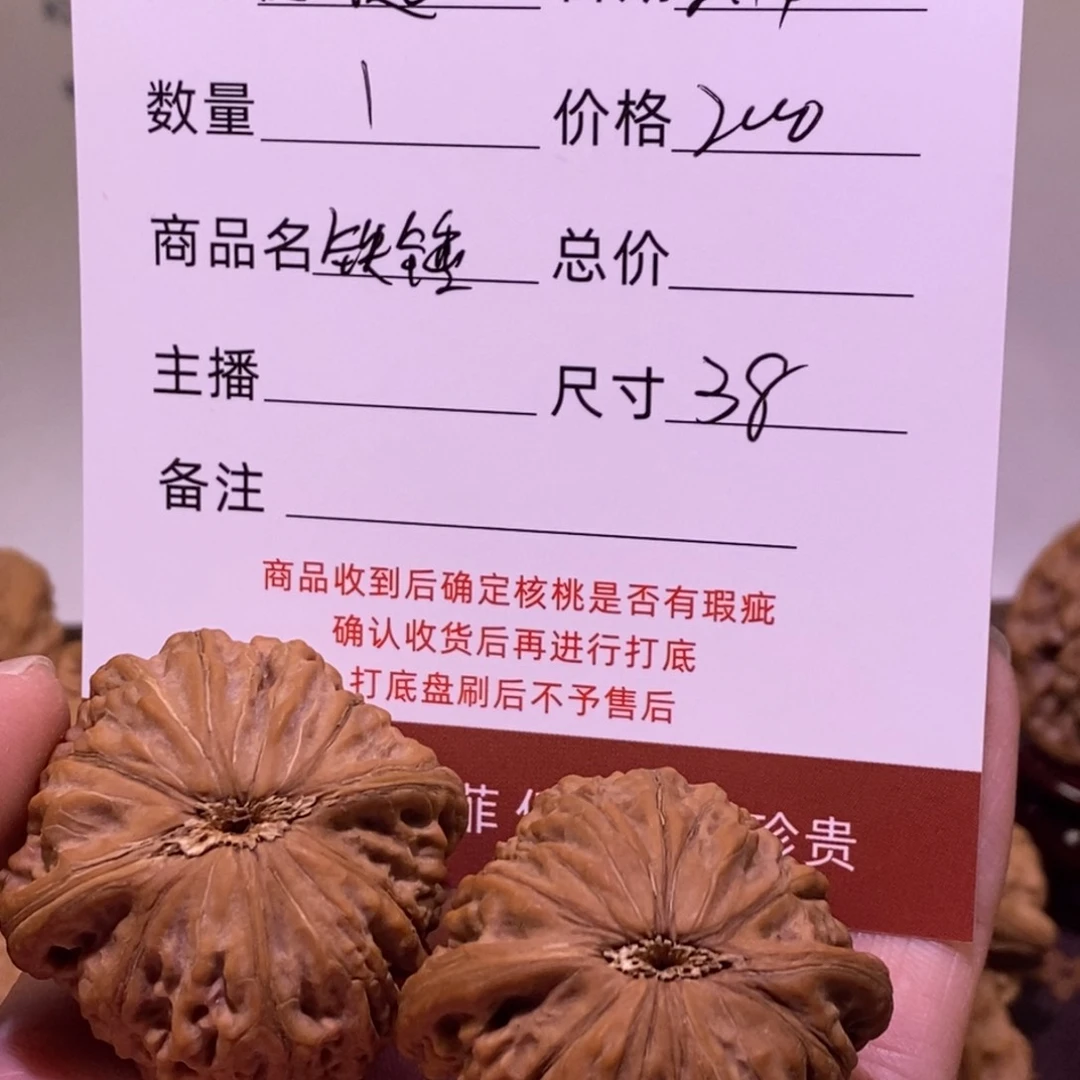 数量 1 价格 2000
商品名 铁锤 总价
主播 尺寸 38
备注
商品收到后确定核桃是否有瑕疵
确认收货后再进行打底
打底盘刷后不予售后
菲 珍贵